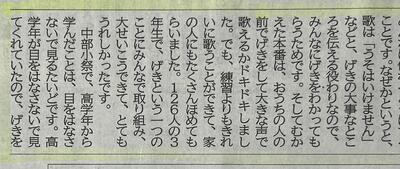 ことです。なぜかというと、
歌は「うそはいけません」
などと、げきの大事なとこ
ろを伝える役わりなので、
みんなにげきをわかっても
らうためです。そしてむか
えた本番は、おうちの人の
前でげきをして大きな声で
歌えるかドキドキしまし
た。でも、練習よりもきれ
いに歌うことができて、家
の人にもたくさんほめても
らいました。126人の3
年生で、げきという一つの
ことにみんなで取り組み、
大せいこうできて、とても
うれしかったです。
中部小祭で、高学年から
学んだことは、目をはなさ
ないで見るたいどです。高
学年が目をはなさないで見
てくれていたので、げきを